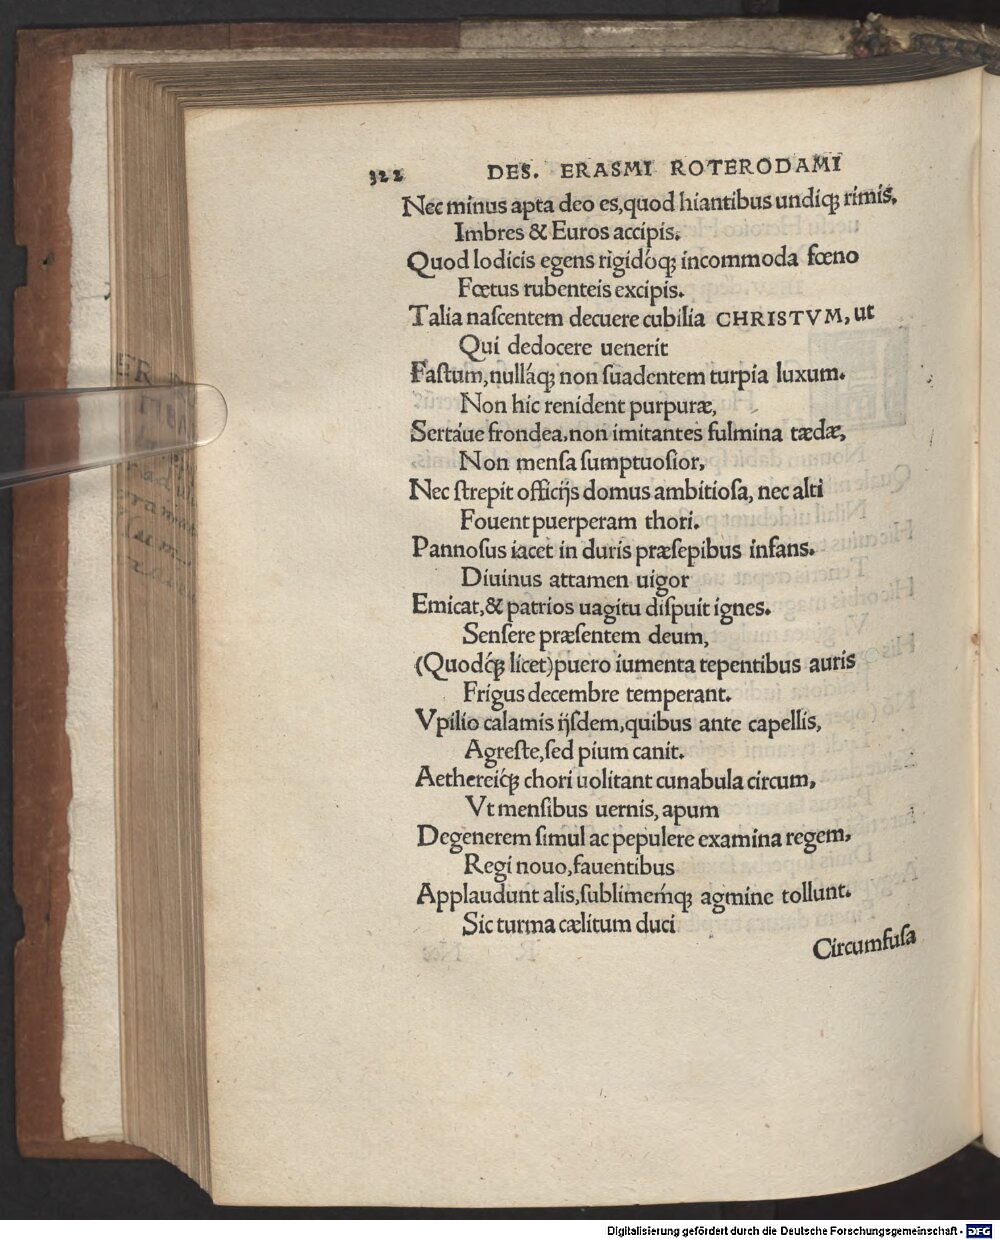 322 DES. ERASMI ROTERODAMI
Nec minus apta deo es,quod hiantibus undiqꝫ rimis,
Imbres & Euros accipis.
Quod lodicis egens rigidóqꝫ incommoda fœno
Fœtus rubenteis excipis.
Talia naſcentem decuere cubilia CHRISTVM, ut
Qui dedocere uenerit
Faſtum,nulláqꝫ non ſuadentem turpia luxum.
Non hic renident purpuræ,
Sertáue frondea,non imitantes fulmina tædæ,
Non menſa ſumptuoſior,
Nec ſtrepit officijs domus ambitioſa, nec alti
Fouent puerperam thori.
Pannoſus iacet in duris præſepibus infans.
Diuinus attamen uigor
Emicat,& patrios uagitu diſpuit ignes.
Senſere præſentem deum,
(Quodq́ꝫ licet)puero iumenta tepentibus auris
Frigus decembre temperant.
Vpilio calamis ijſdem,quibus ante capellis,
Agreſte,ſed pium canit.
Aethereiq́ꝫ chori uolitant cunabula circum,
Vt menſibus uernis, apum
Degenerem ſimul ac pepulere examina regem,
Regi nouo,fauentibus
Applaudunt alis,ſublimeḿqꝫ agmine tollunt.
Sic turma cælitum duci
Circumfuſa
Digitalisierung gefördert durch die Deutsche Forschungsgemeinschaft - DFG